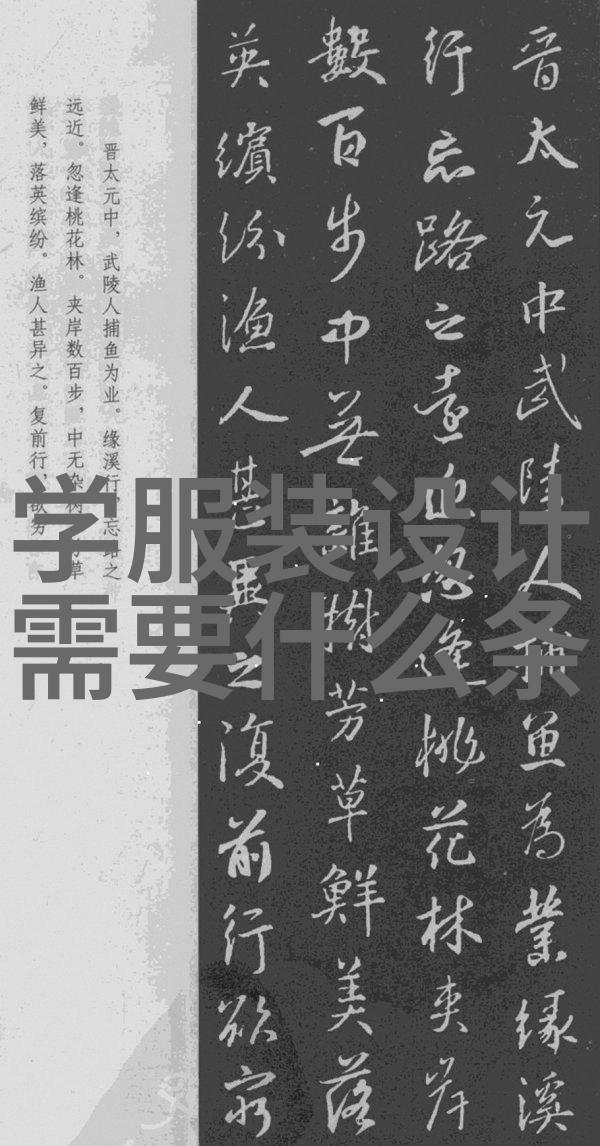 学服装设计
需要什么条
晋太元中武陵人捕魚為業緣溪
行忘路之遠近忽逢桃花林夾岸
數百步中無雜樹芳草鮮美落
英繽紛漁人甚異之復前行欲窮
晋太元中，武陵人捕鱼为业。缘溪行，忘路之
远近。忽逢桃花林。夹岸数百步，中无杂树，芳草
鲜美，落英缤纷。渔人甚异之。复前行，欲穷